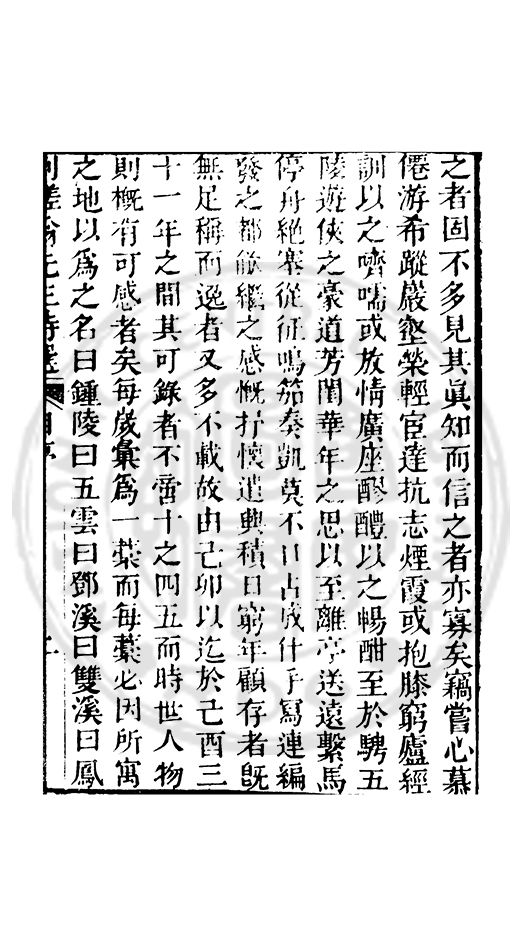 之者固不多見其眞知而信之者亦寡矣竊嘗心慕
僊游希蹤巖壑榮輕宦達抗志煙霞或抱膝窮廬經
訓以之嚌嚅或放情廣座醪醴以之暢酣至於騁五
陵遊俠之豪道芳閨華年之思以至離亭送遠繫馬
停舟絕塞從征鳴笳奏凱莫不口占成什手寫連編
發之都繼之感慨抒懷遣興積日窮年顧存者旣
無足稱而逸者又多不載故由己卯以迄於己酉三
十一年之間其可錄者不啻十之四五而時世人物
則槪有可感者矣每歲彙爲一藁而每藁必因所寓
之地以爲之名曰鍾陵曰五雲曰鄧溪曰雙溪曰鳳